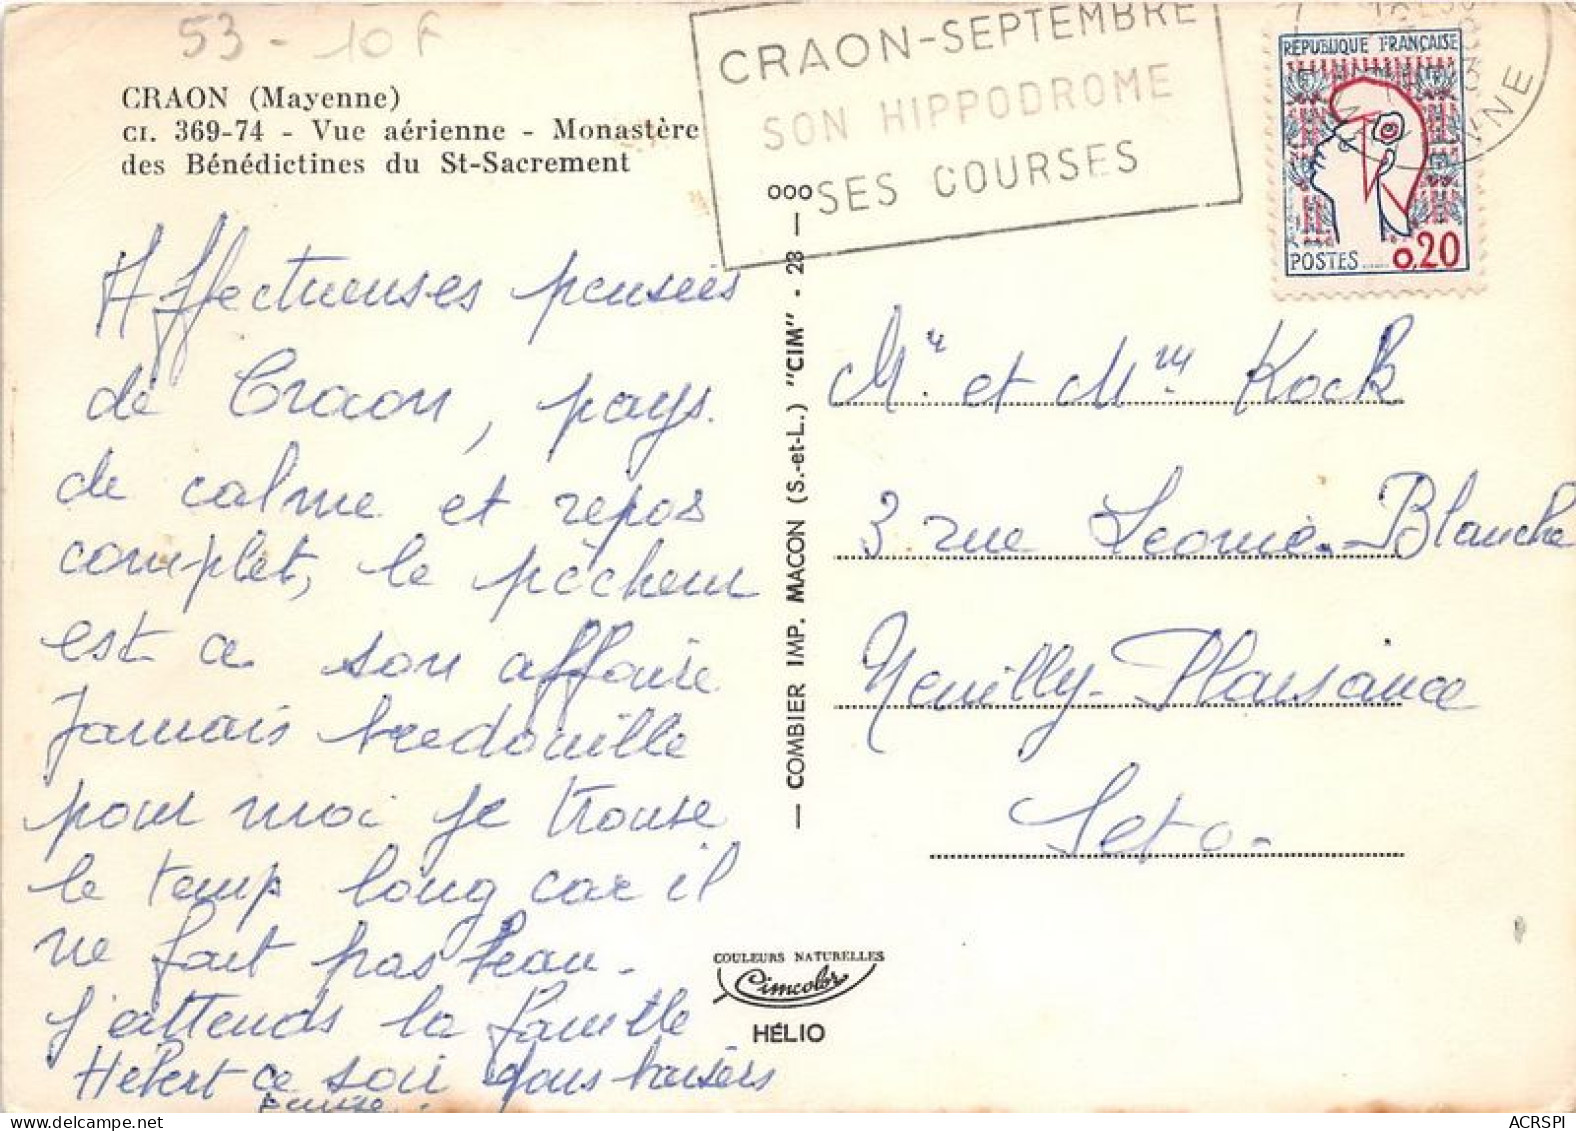 53 - 10 F
CRAON (Mayenne)
CI. 369-74 - Vue aérienne - Monastère
des Bénédictines du St-Sacrement
CRAON-SEPTEMBRE
SON HIPPODROME
SES COURSES
RÉPUBLIQUE FRANÇAISE
POSTES 0,20
Affectueuses pensées
de Craon, pays
de calme et repos
complet, le pêcheur
est a son affaire
Jamais bredouille
pour moi je trouve
le temp long car il
ne fait pas beau.
J'attends la famille
Hébert ce soir
Mr et Mme Kock
3 rue Leonie. Blanche
Neuilly-Plaisance
Set o.
— COMBIER IMP. MACON (S.-et-L.) "CIM" . 28 — ooo
COULEURS NATURELLES
Cimcolor
HÉLIO
ACRSPI